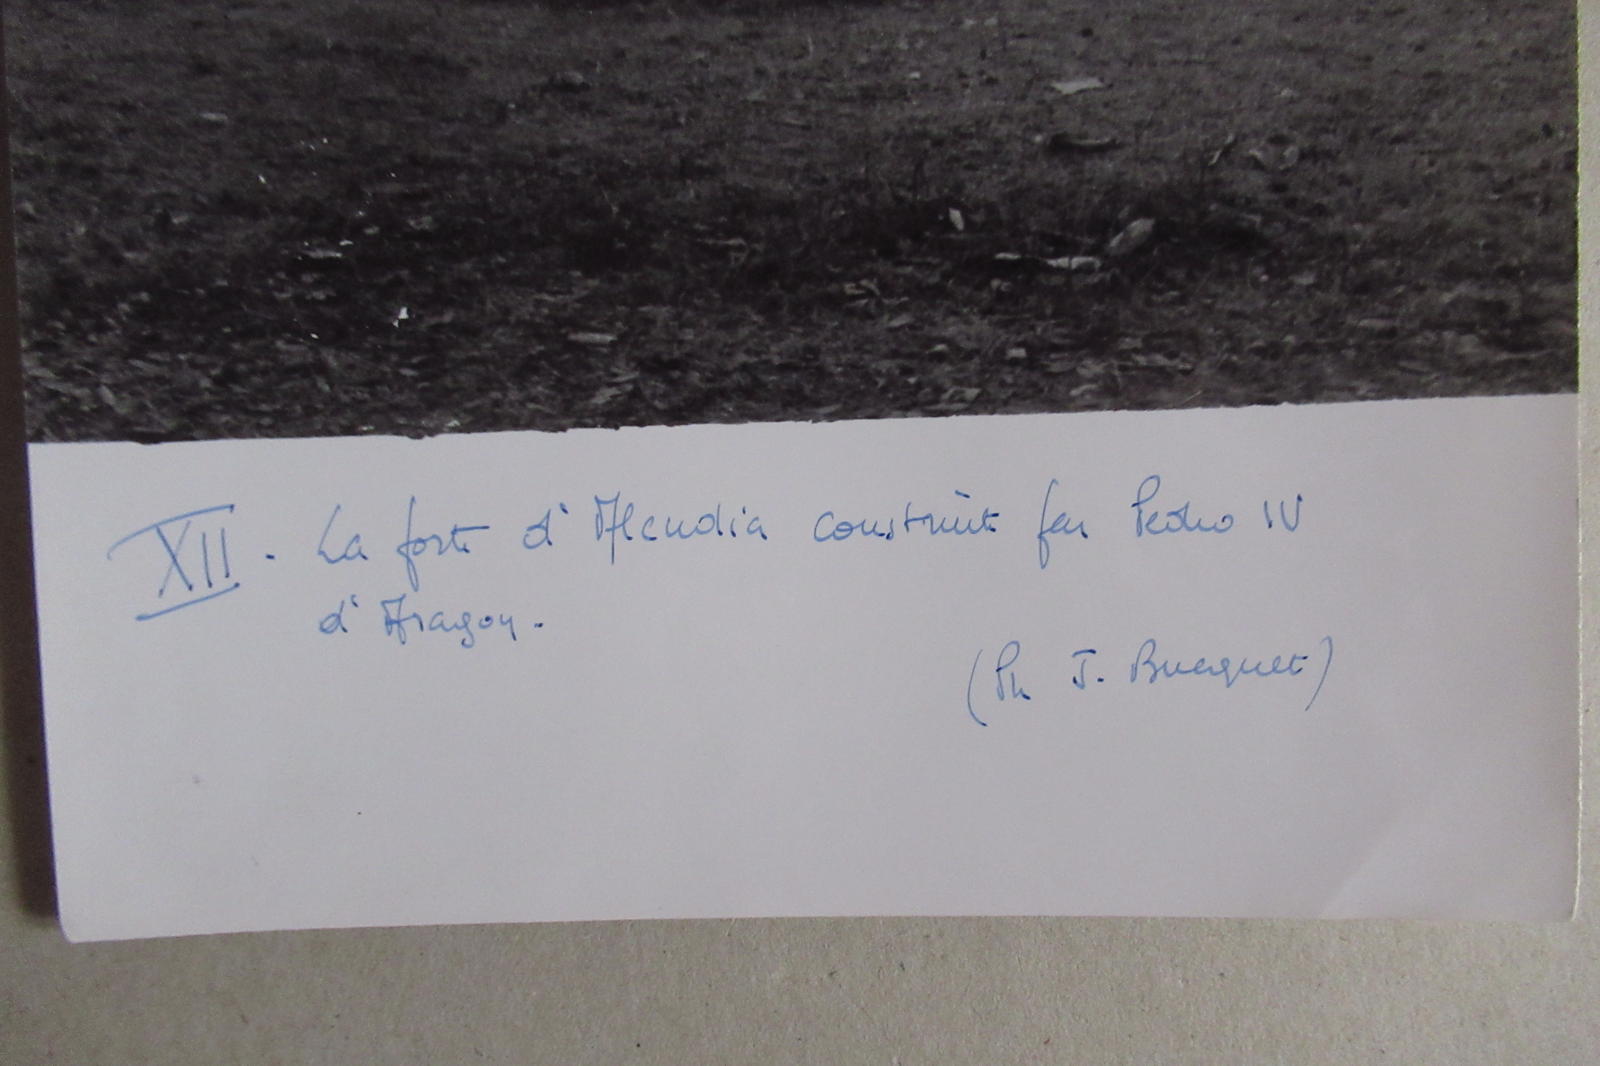 XII. La porte d'Alcudia construite par Pedro IV
d'Aragon.
(Ph J. Bucquet)